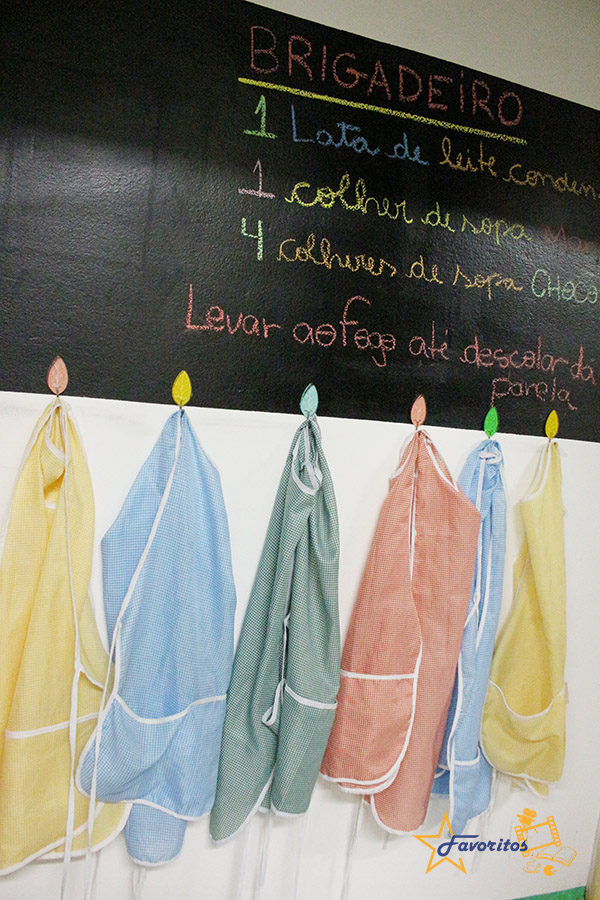 BRIGADEIRO
1 Lata de leite conden
1 colher de sopa Man
4 colheres de sopa CHOCO
Levar ao fogo até descolar da
panela
Favoritos